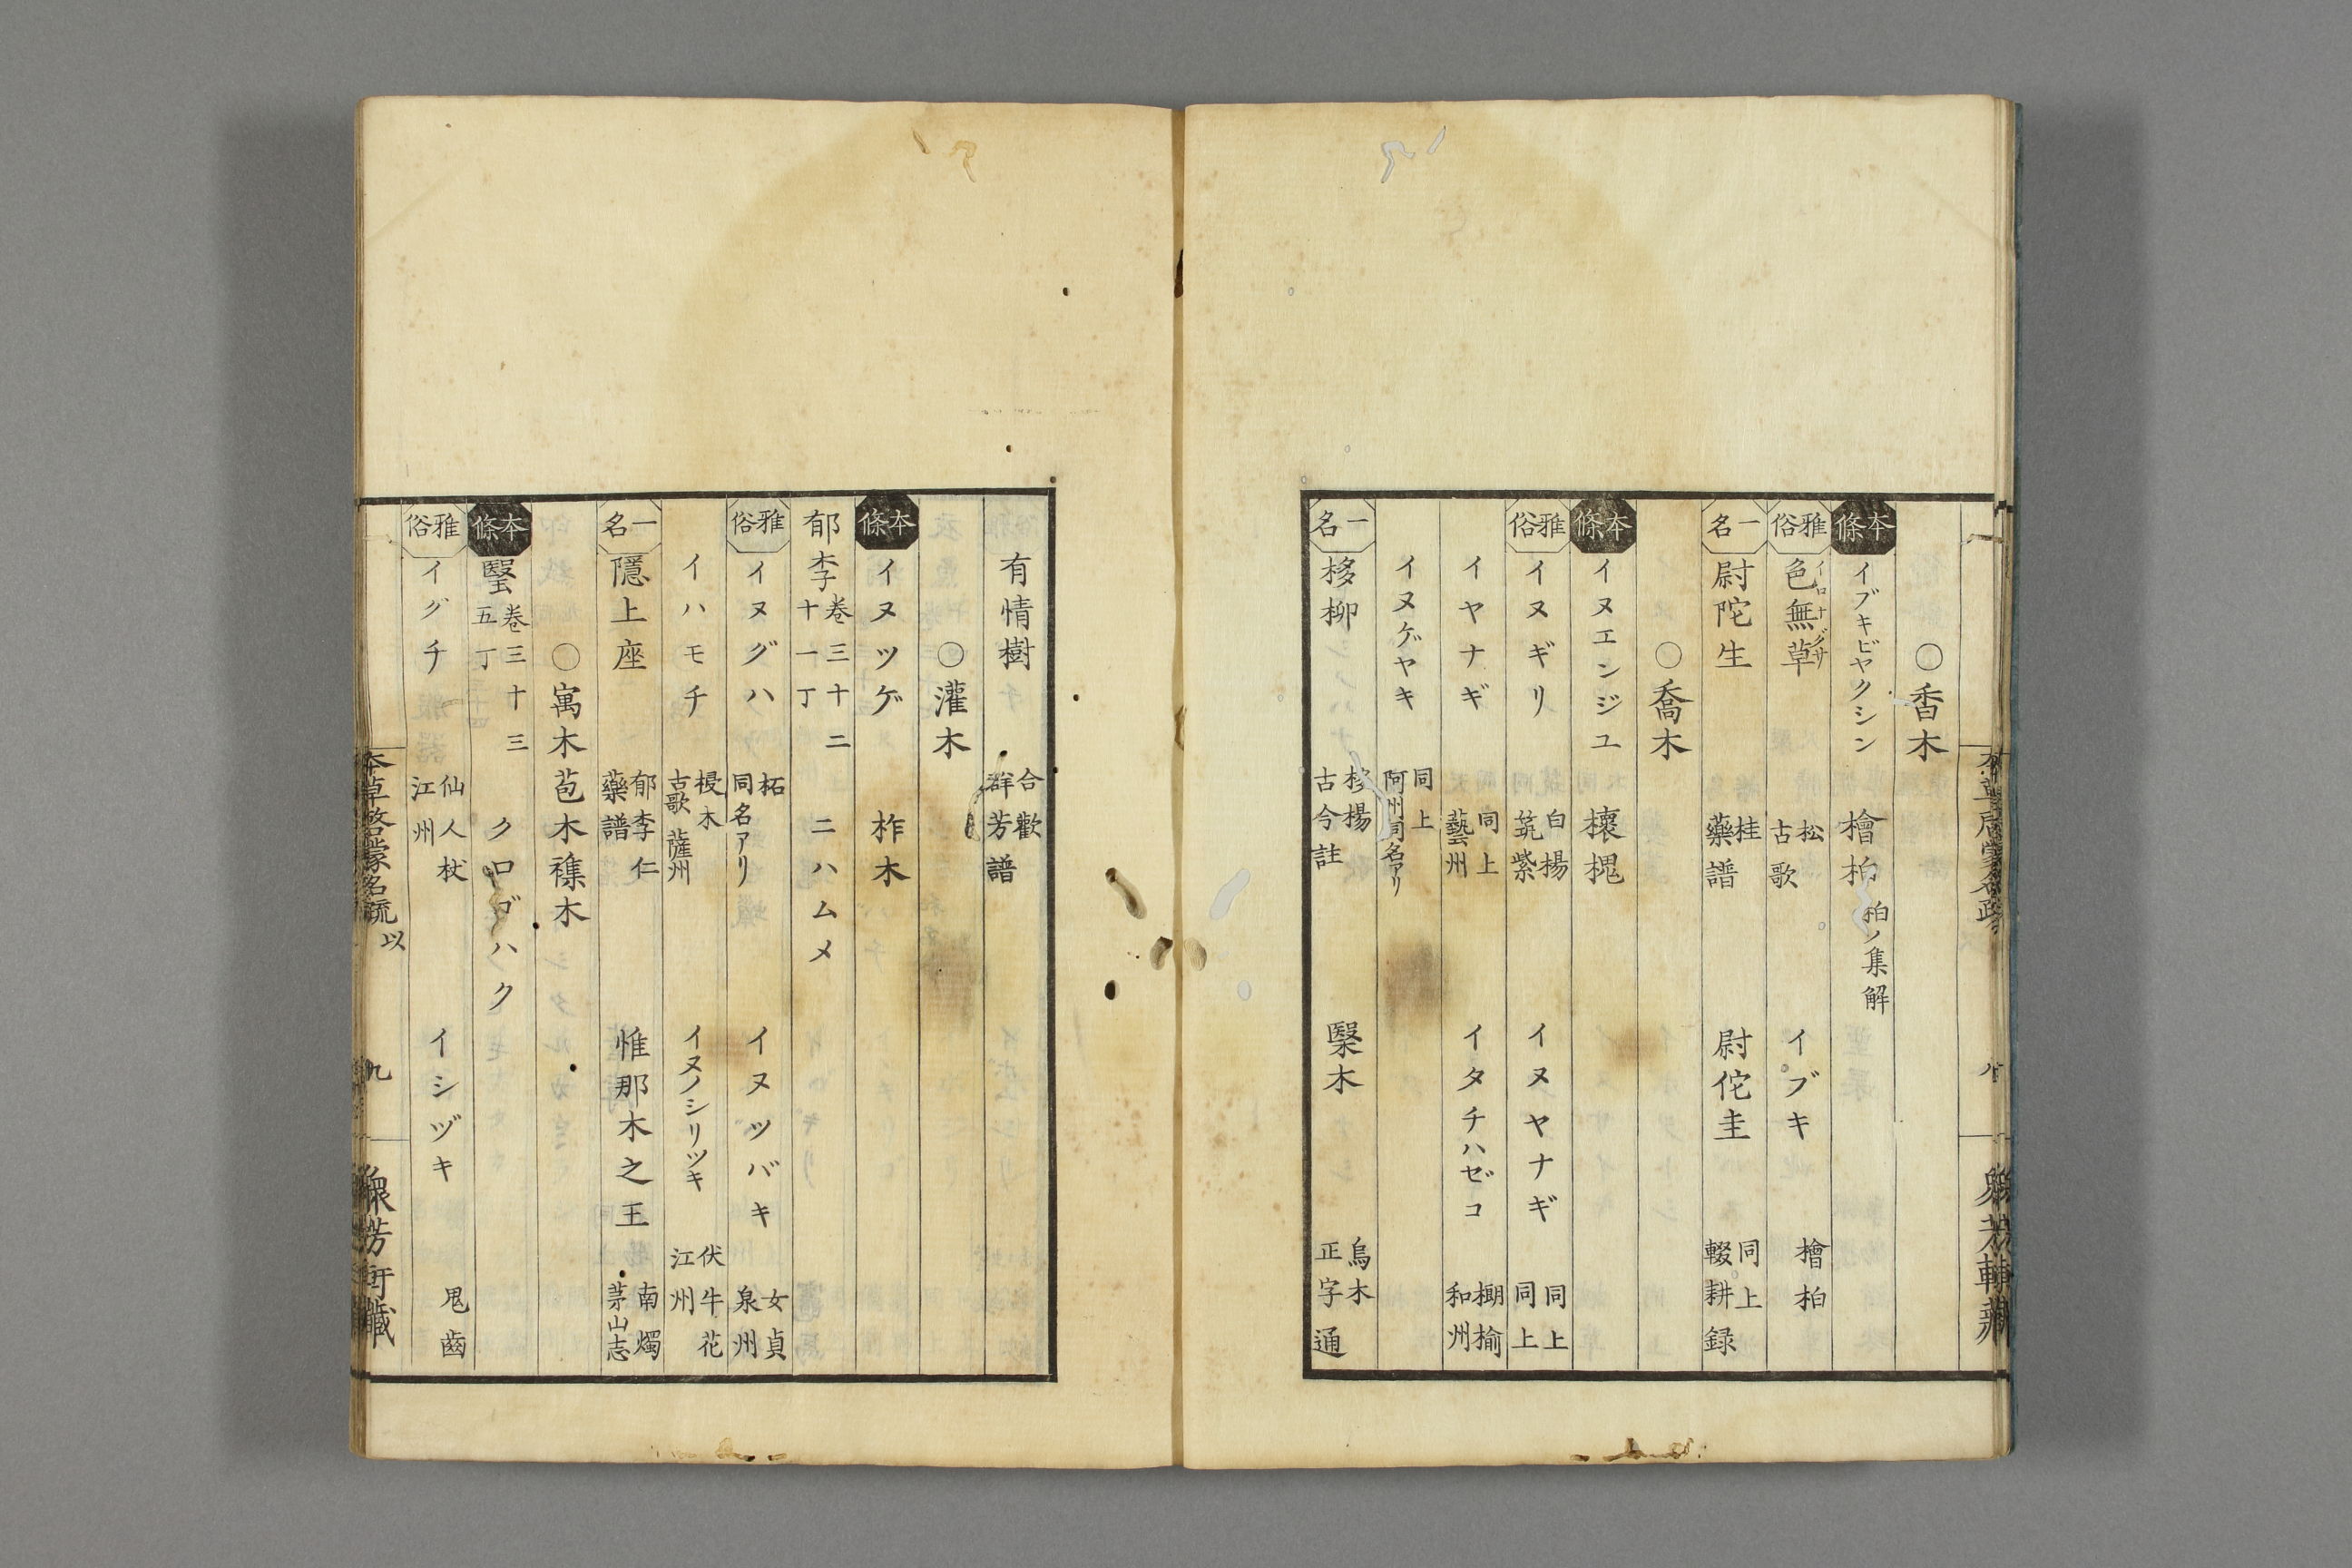 ○香木
本條 イブキビヤクシン 檜柏 柏ノ集解
雅俗 色無草 イロナグサ 松 古歌 イブキ 檜柏
一名 尉陀生 桂 藥譜 尉佗圭 同上 輟耕録
○喬木
本條 イヌエンジユ 櫰槐
雅俗 イヌギリ 白楊 筑紫 イヌヤナギ 同上 同上
イヤナギ 同上 藝州 イタチハゼコ 榆 和州
イヌゲヤキ 同上 阿州同名アリ
一名 栘柳 栘楊 古今註 槼木 烏木 正字通
有情樹 合歡 群芳譜
○灌木
本條 イヌツゲ 柞木
郁李 卷三十二 十一丁 ニハムメ
雅俗 イヌグハ 柘 同名アリ イヌツバキ 女貞 泉州
イハモチ 椴木 古歌 薩州 イヌノシリツキ 伏牛花 江州
一名 隱上座 郁李仁 藥譜 惟那木之王 南燭 茅山志
○寓木 苞木 襍木
本條 瑿 卷三十三 五丁 クロゴハク
雅俗 イグチ 仙人杖 江州 イシヅキ 鬼齒
本草啓蒙名疏 以 九 衆芳軒藏